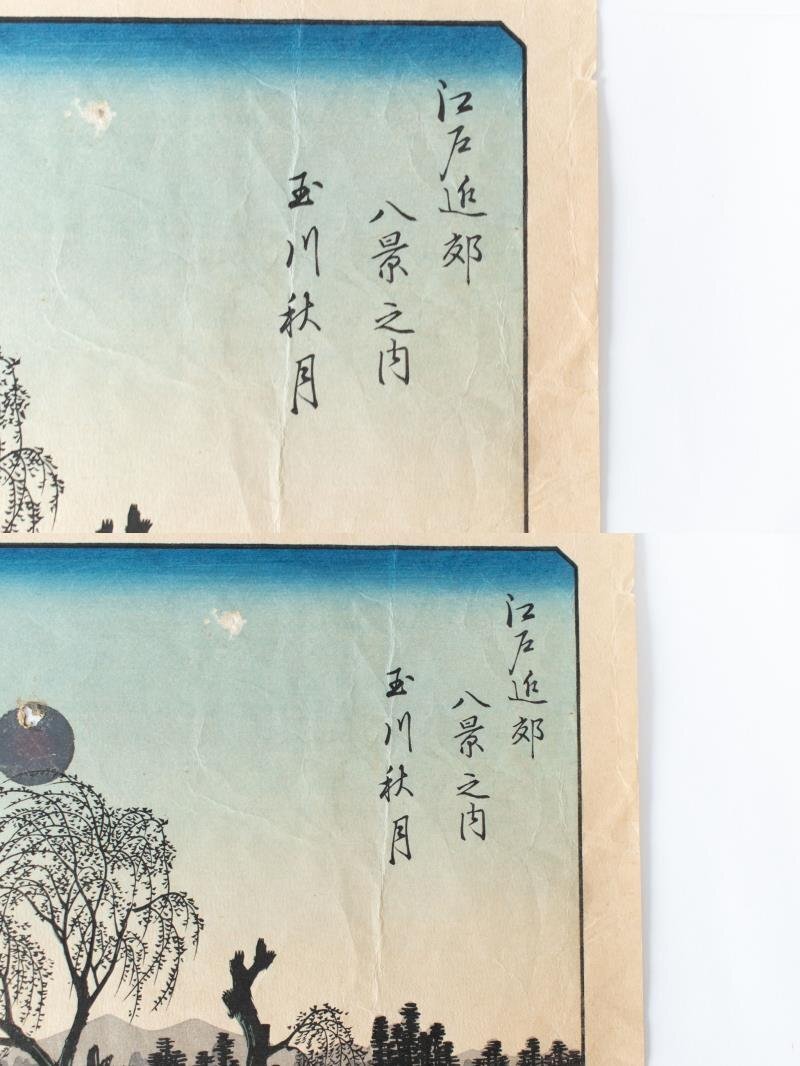 江戸近郊
八景之内
玉川秋月
江戸近郊
八景之内
玉川秋月